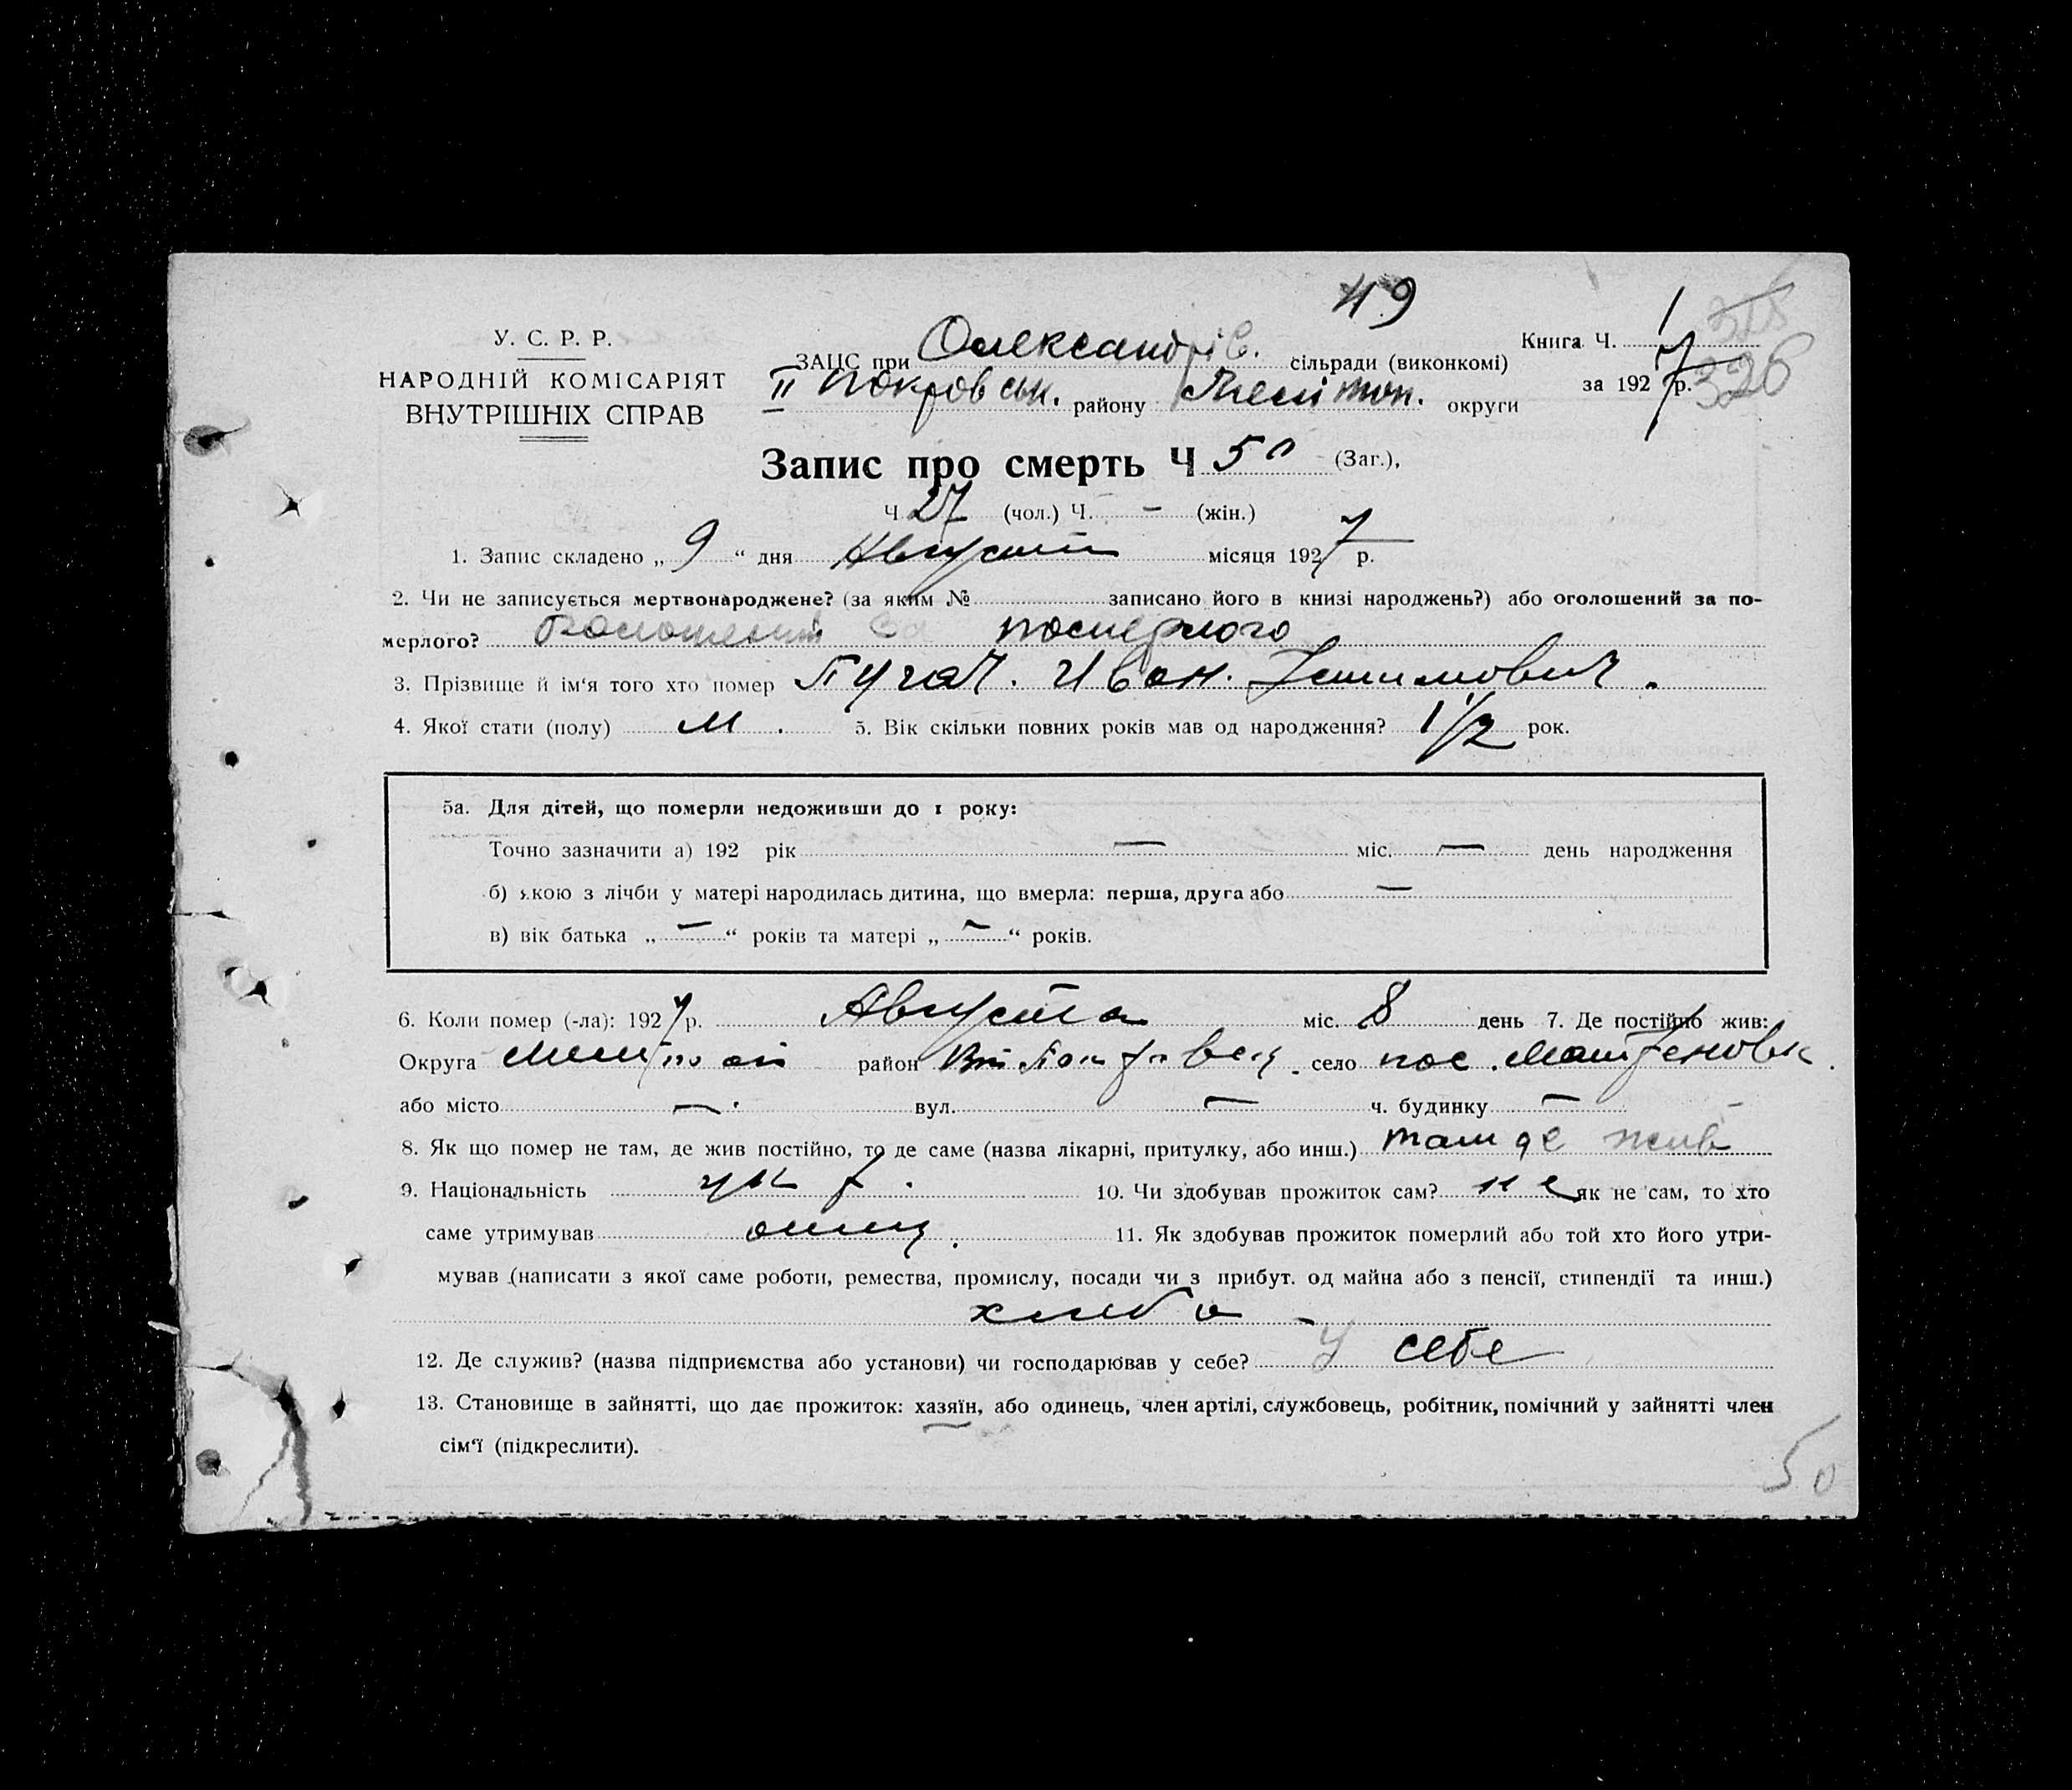 49
У. С. Р. Р.
НАРОДНІЙ КОМІСАРІЯТ
ВНУТРІШНІХ СПРАВ
ЗАЦС при Олександрів. сільради (виконкомі)
II Покровськ. району Мелітоп. округи
Книга Ч. 1
за 1927 р. 326
Запис про смерть Ч 50 (Заг.),
Ч 27 (чол.) Ч. – (жін.)
1. Запис складено „ 9 “ дня Август місяця 1927 р.
2. Чи не записується мертвонароджене? (за яким № записано його в книзі народжень?) або оголошений за по-
мерлого?
3. Прізвище й ім'я того хто помер Пугач. Иван.
4. Якої стати (полу) М. 5. Вік скільки повних років мав од народження? 1 1/2 рок.
5а. Для дітей, що померли недоживши до 1 року:
Точно зазначити а) 192 рік — міс. — день народження
б) якою з лічби у матері народилась дитина, що вмерла: перша, друга або —
в) вік батька „ — “ років та матері „ — “ років.
6. Коли помер (-ла): 1927 р. Августа міс. 8 день 7. Де постійно жив:
Округа район село пос.
або місто — . вул. — ч. будинку —
8. Як що помер не там, де жив постійно, то де саме (назва лікарні, притулку, або инш.) там де жив
9. Національність укр. 10. Чи здобував прожиток сам? не як не сам, то хто
саме утримував отец. 11. Як здобував прожиток померлий або той хто його утри-
мував (написати з якої саме роботи, ремества, промислу, посади чи з прибут. од майна або з пенсії, стипендії та инш.)
хлібо –
12. Де служив? (назва підприємства або установи) чи господарював у себе? У себе
13. Становище в зайнятті, що дає прожиток: хазяїн, або одинець, член артілі, службовець, робітник, помічний у зайнятті член
сім'ї (підкреслити).
50